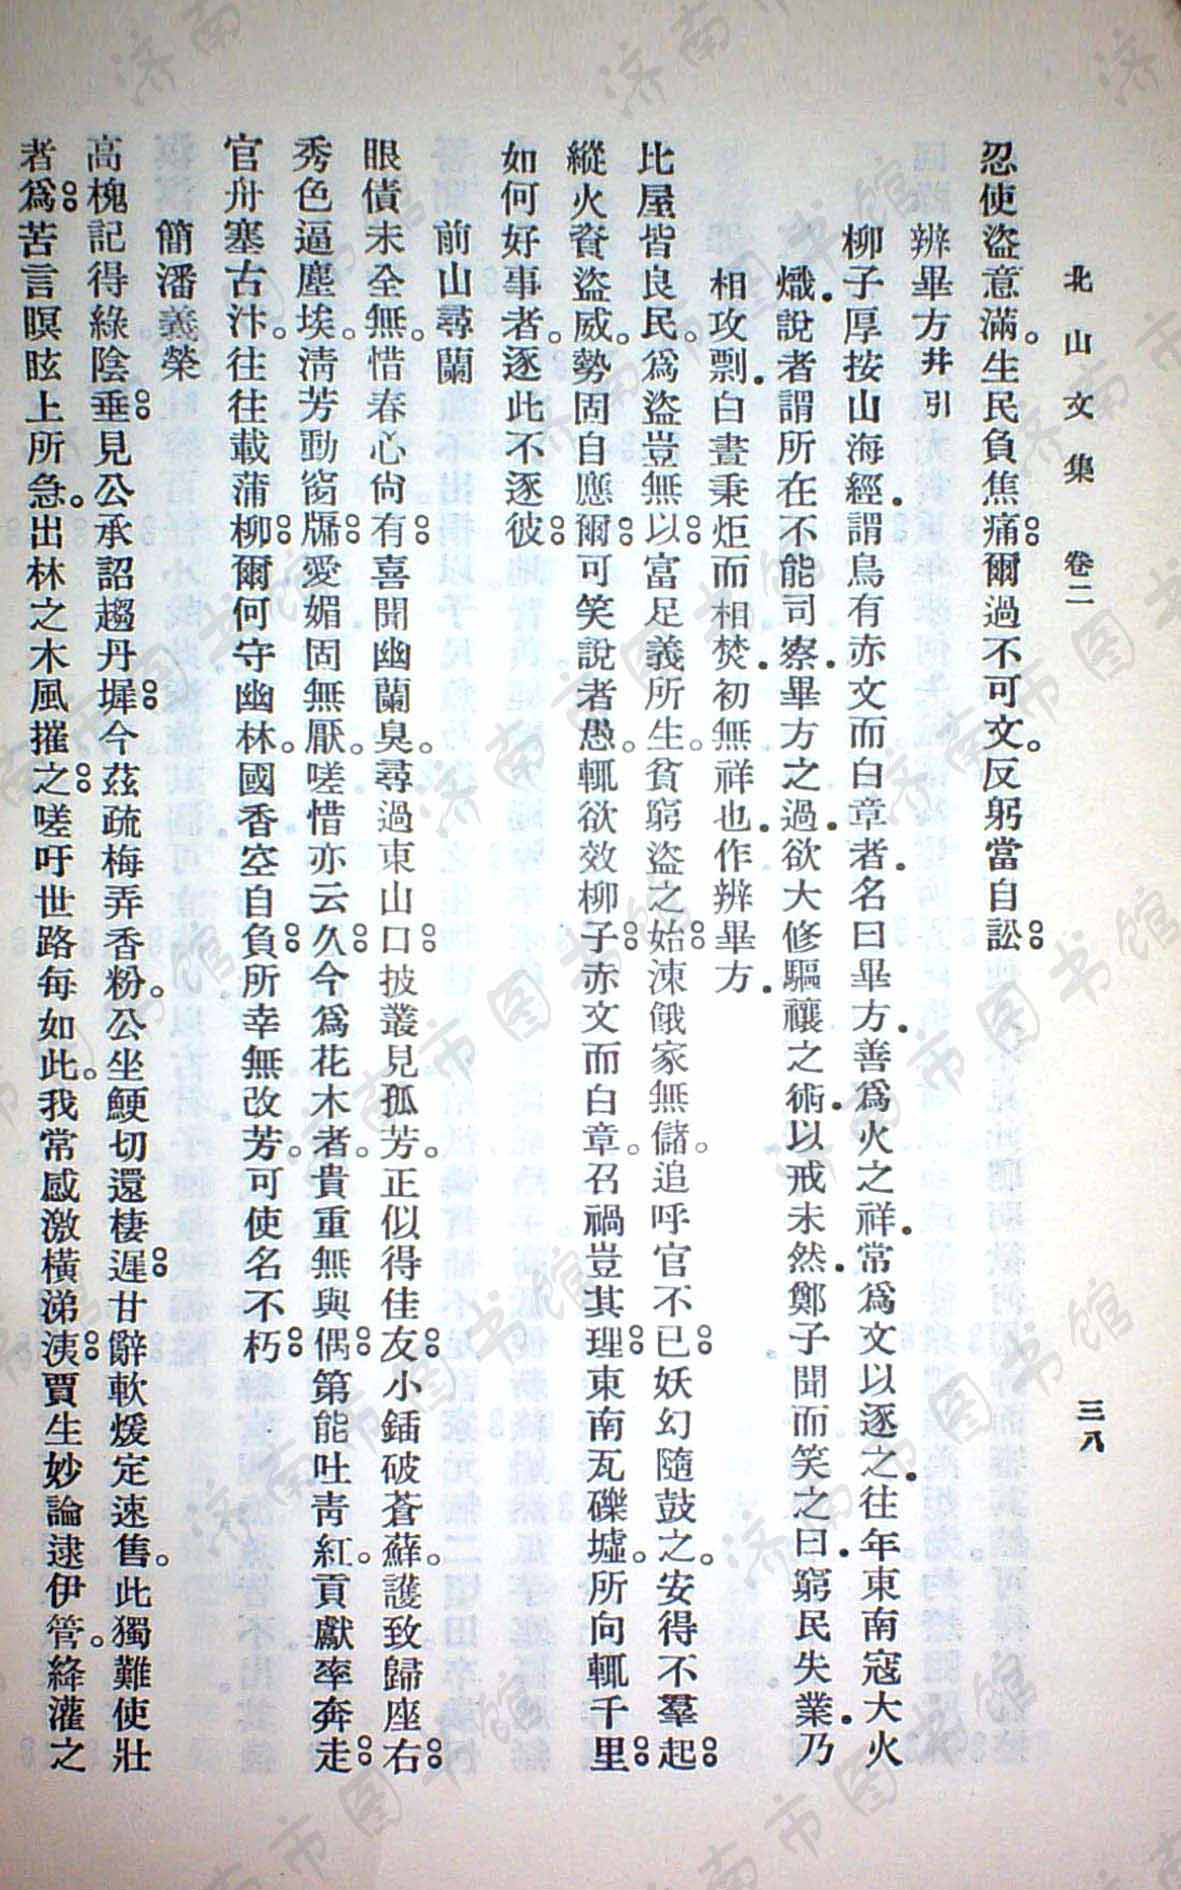 北山文集　卷二　三八
忍使盜意滿。生民負焦痛。。爾過不可文。反躬當自訟。。
辨畢方并引
柳子厚按山海經．謂鳥有赤文而白章者．名曰畢方．善爲火之祥．常爲文以逐之．往年東南寇大火
熾．說者謂所在不能司察．畢方之過．欲大修驅禳之術．以戒未然．鄭子聞而笑之曰．窮民失業．乃
相攻剽．白晝秉炬而相焚．初無祥也．作辨畢方．
比屋皆良民。爲盜豈無以。。富足義所生。貧窮盜之始。。凍餓家無儲。追呼官不已。。妖幻隨鼓之。安得不羣起。。
縱火資盜威。勢固自應爾。。可笑說者愚。輒欲效柳子。。赤文而白章。召禍豈其理。。東南瓦礫墟。所向輒千里。。
如何好事者。逐此不逐彼。。
前山尋蘭
眼債未全無。惜春心尙有。。喜聞幽蘭臭。尋過東山口。。披叢見孤芳。正似得佳友。。小鍤破蒼蘚。護致歸座右。。
秀色逼塵埃。清芳動窗牖。。愛媚固無厭。嗟惜亦云久。。今爲花木者。貴重無與偶。。第能吐靑紅。貢獻率奔走。。
官舟塞古汴。往往載蒲柳。。爾何守幽林。國香空自負。。所幸無改芳。可使名不朽。。
簡潘義榮
高槐記得綠陰垂。。見公承詔趨丹墀。。今茲疏梅弄香粉。公坐鯁切還棲遲。。甘辭軟煖定速售。此獨難使壯
者爲。。苦言瞑眩上所急。出林之木風摧之。。嗟吁世路每如此。我常感激橫涕洟。。賈生妙論逮伊管。絳灌之